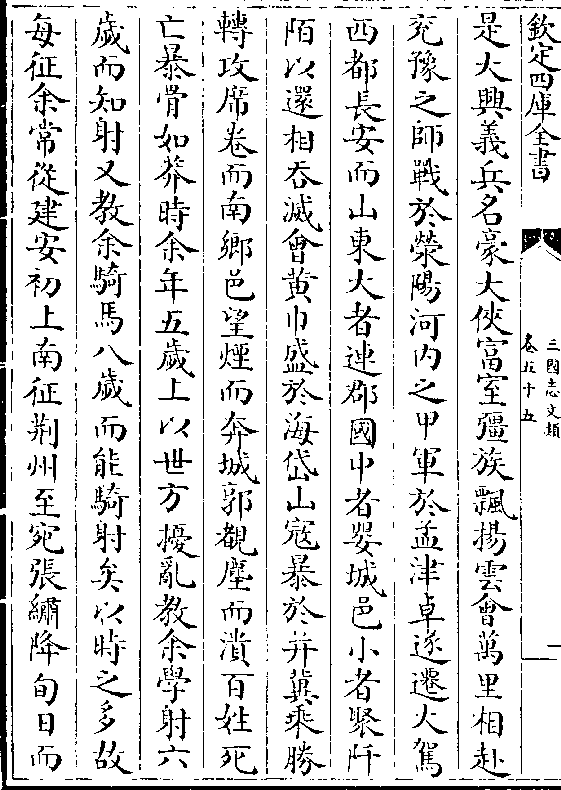 欽定四庫全書
三國志文類
卷五十五
是大興義兵名豪大俠富室彊族飄揚雲會萬里相赴
兗豫之師戰於滎陽河内之甲軍於孟津卓遂遷大駕
西都長安而山東大者連郡國中者嬰城邑小者聚阡
陌以還相吞滅會黄巾盛於海岱山寇暴於并冀乘勝
轉攻席卷而南鄉邑望煙而奔城郭覩塵而潰百姓死
亡暴骨如莽時余年五歲上以世方擾亂教余學射六
歲而知射又教余騎馬八歲而能騎射矣以時之多故
每征余常從建安初上南征荆州至宛張繡降旬日而